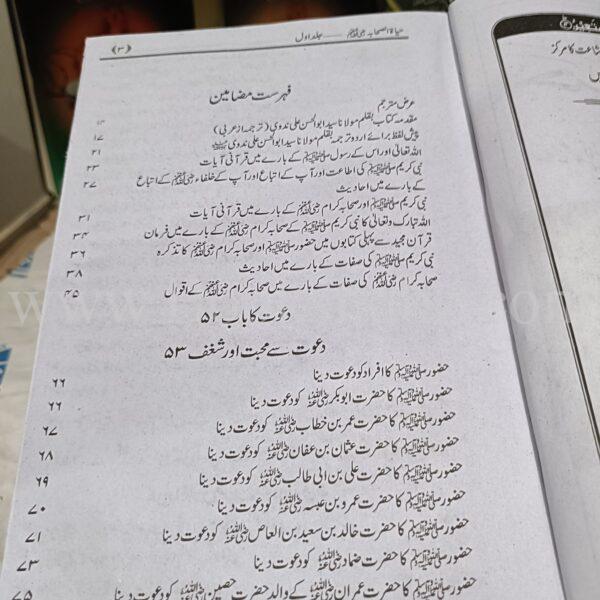 حیاۃ الصحابہ رضی اللہ عنہم —— جلد اول
﴿۳﴾
فہرست مضامین
عرض مترجم
مقدمہ کتاب بقلم مولانا سید ابوالحسن علی ندوی (ترجمہ از عربی) ۱۳
پیش لفظ برائے اردو ترجمہ بقلم مولانا سید ابوالحسن علی ندوی ۱۷
اللہ تعالیٰ اور اس کے رسول ﷺ کے بارے میں قرآنی آیات ۲۱
نبی کریم ﷺ کی اطاعت اور آپ کے اتباع اور آپ کے خلفاء رضی اللہ عنہم کے اتباع ۲۳
کے بارے میں احادیث ۲۷
نبی کریم ﷺ اور صحابہ کرام رضی اللہ عنہم کے بارے میں قرآنی آیات ۳۱
اللہ تبارک وتعالیٰ کا نبی کریم ﷺ کے صحابہ کرام رضی اللہ عنہم کے بارے میں فرمان ۳۴
قرآن مجید سے پہلی کتابوں میں حضور ﷺ اور صحابہ کرام رضی اللہ عنہم کا تذکرہ ۳۶
نبی کریم ﷺ کی صفات کے بارے میں احادیث ۳۸
صحابہ کرام رضی اللہ عنہم کی صفات کے بارے میں صحابہ کرام رضی اللہ عنہم کے اقوال ۴۵
دعوت کا باب ۵۲
دعوت سے محبت اور شغف ۵۳
حضور ﷺ کا افراد کو دعوت دینا ۶۶
حضور ﷺ کا حضرت ابوبکر رضی اللہ عنہ کو دعوت دینا ۶۶
حضور ﷺ کا حضرت عمر بن خطاب رضی اللہ عنہ کو دعوت دینا ۶۷
حضور ﷺ کا حضرت عثمان بن عفان رضی اللہ عنہ کو دعوت دینا ۶۸
حضور ﷺ کا حضرت علی بن ابی طالب رضی اللہ عنہ کو دعوت دینا ۶۹
حضور ﷺ کا حضرت عمرو بن عبسہ رضی اللہ عنہ کو دعوت دینا ۷۰
حضور ﷺ کا حضرت خالد بن سعید بن العاص رضی اللہ عنہ کو دعوت دینا ۷۱
حضور ﷺ کا حضرت ضماد رضی اللہ عنہ کو دعوت دینا ۷۳
حضور ﷺ کا حضرت عمران رضی اللہ عنہ کے والد حضرت حصین رضی اللہ عنہ کو دعوت دینا ۷۵
کا مرکز
www